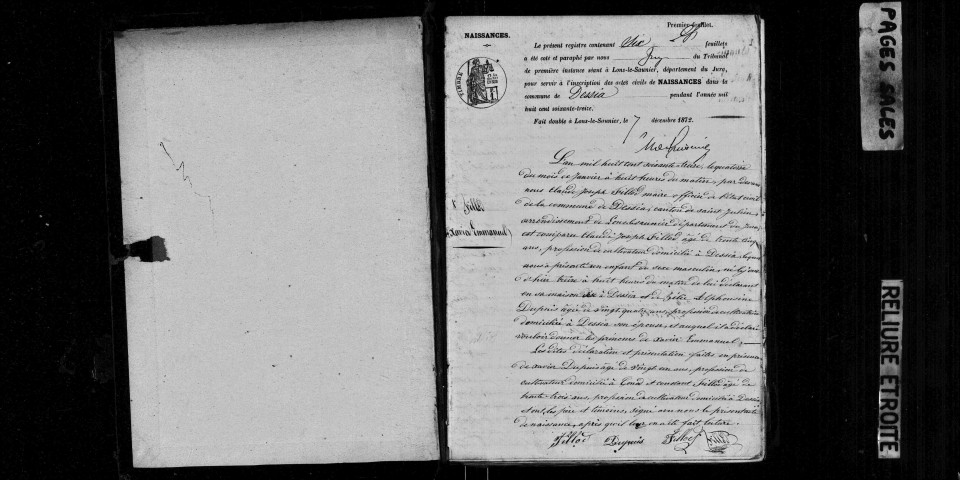 Premier feuillet.
NAISSANCES.
Le présent registre contenant Six feuillets
a été coté et paraphé par nous Juge du Tribunal
de première instance séant à Lons-le-Saunier, département du Jura,
pour servir à l'inscription des actes civils de NAISSANCES dans la
commune de Dessia pendant l'année mil
huit cent soixante-treize.
Fait double à Lons-le-Saunier, le 7 décembre 1872.
TIMBRE
L'an mil huit cent soixante-treize, le quatorze
du mois de Janvier à huit heures du matin, par devant
nous Claude Joseph Fillod maire officier de l'état civil
de la commune de Dessia, canton de saint Julien,
arrondissement de Lons-le-saunier département du Jura,
est comparu Claude Joseph Fillod âgé de trente cinq
ans, profession de cultivateur domicilié à Dessia lequel
nous a présenté un enfant de sexe masculin, né le jour
d'hier treize à huit heures du matin de lui déclarant
en sa maison à Dessia et de Zélie Alphonsine
Dupuis âgée de vingt quatre ans, profession de cultivatrice
domiciliée à Dessia son épouse, et auquel il a déclaré
vouloir donner les prénoms de Xavier Emmanuel,
Les dites déclaration et présentation faites en présence
de xavier Dupuis âgé de vingt un ans, profession de
cultivateur domicilié à et Fillod âgé de
trente-trois ans, profession de cultivateur domicilié à Dessia
et ont, les père et témoins, signé avec nous le présent acte
de naissance, après qu'il leur en a été fait lecture.
Fillod Dupuis Fillod
1 Fillod
Xavier Emmanuel
PAGES SALES
RELIURE ETROITE